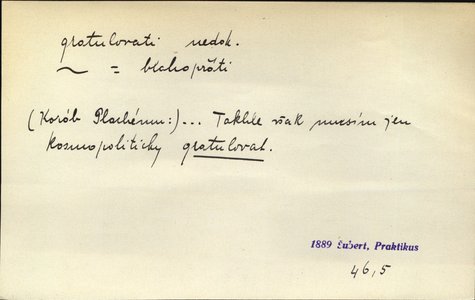 gratulovati nedok.
~ = blahopřáti
(Koráb Plachému:)... Takhle však musím jen
kosmopoliticky gratulovat.
1889 Šubert, Praktikus
46,5